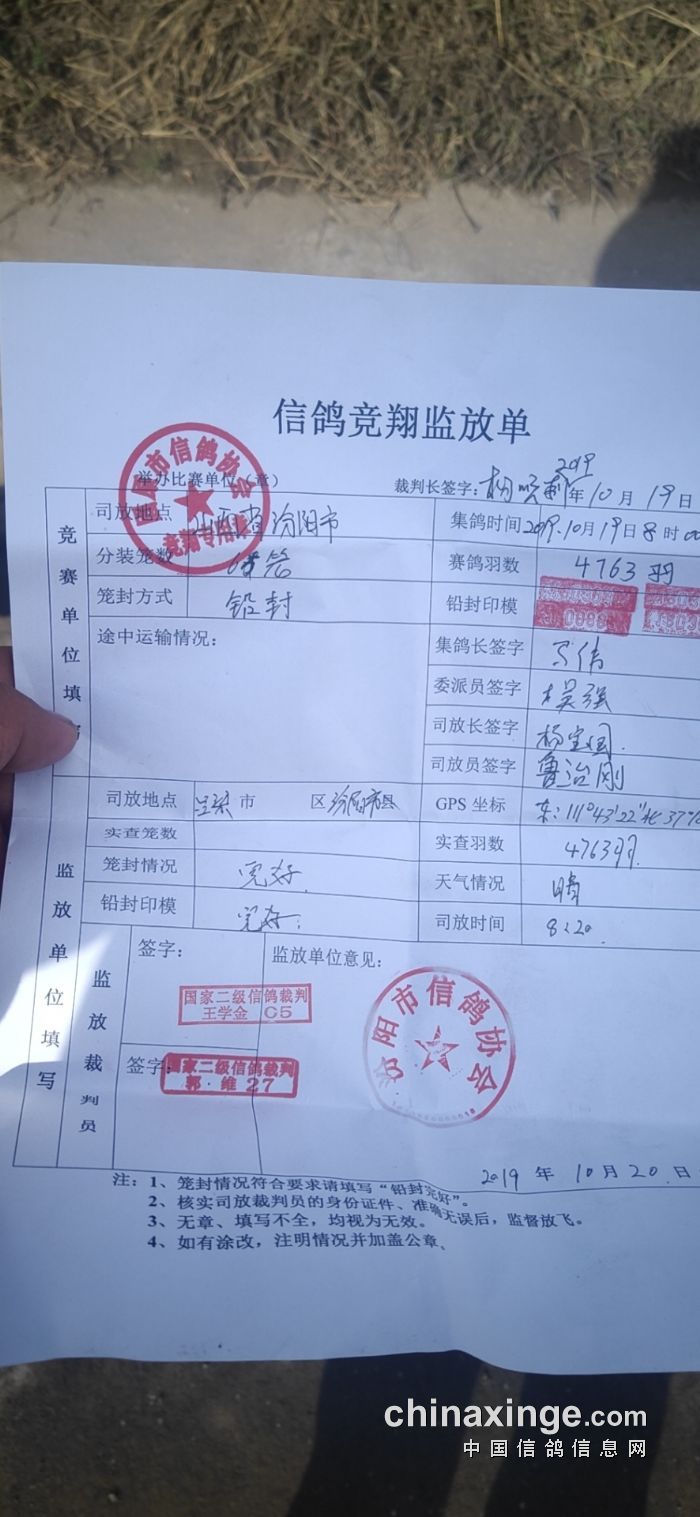 信鸽竞翔监放单
举办比赛单位(章) 裁判长签字: 2019年10月19日
市信鸽协会
竞翔专用章
竞赛单位填写
司放地点 山西省汾阳市 集鸽时间 2019.10月19日8时00
分装笼数 赛鸽羽数 4763羽
笼封方式 铅封 铅封印模
途中运输情况: 集鸽长签字
委派员签字 吴强
司放长签字 杨宝国
司放员签字 鲁治刚
监放单位填写
司放地点 吕梁市 区汾阳市县 GPS 坐标 东:111°43′22″北37°
实查笼数 实查羽数 4763羽
笼封情况 完好 天气情况 晴
铅封印模 完好 司放时间 8:20
监放裁判员
签字: 监放单位意见:
国家二级信鸽裁判
王学金 C5
签字:
国家二级信鸽裁判
郭·维 27
汾阳市信鸽协会
2019年10月20日
注: 1、笼封情况符合要求请填写“铅封完好”。
2、核实司放裁判员的身份证件、准确无误后,监督放飞。
3、无章、填写不全,均视为无效。
4、如有涂改,注明情况并加盖公章。
chinaxinge.com
中国信鸽信息网